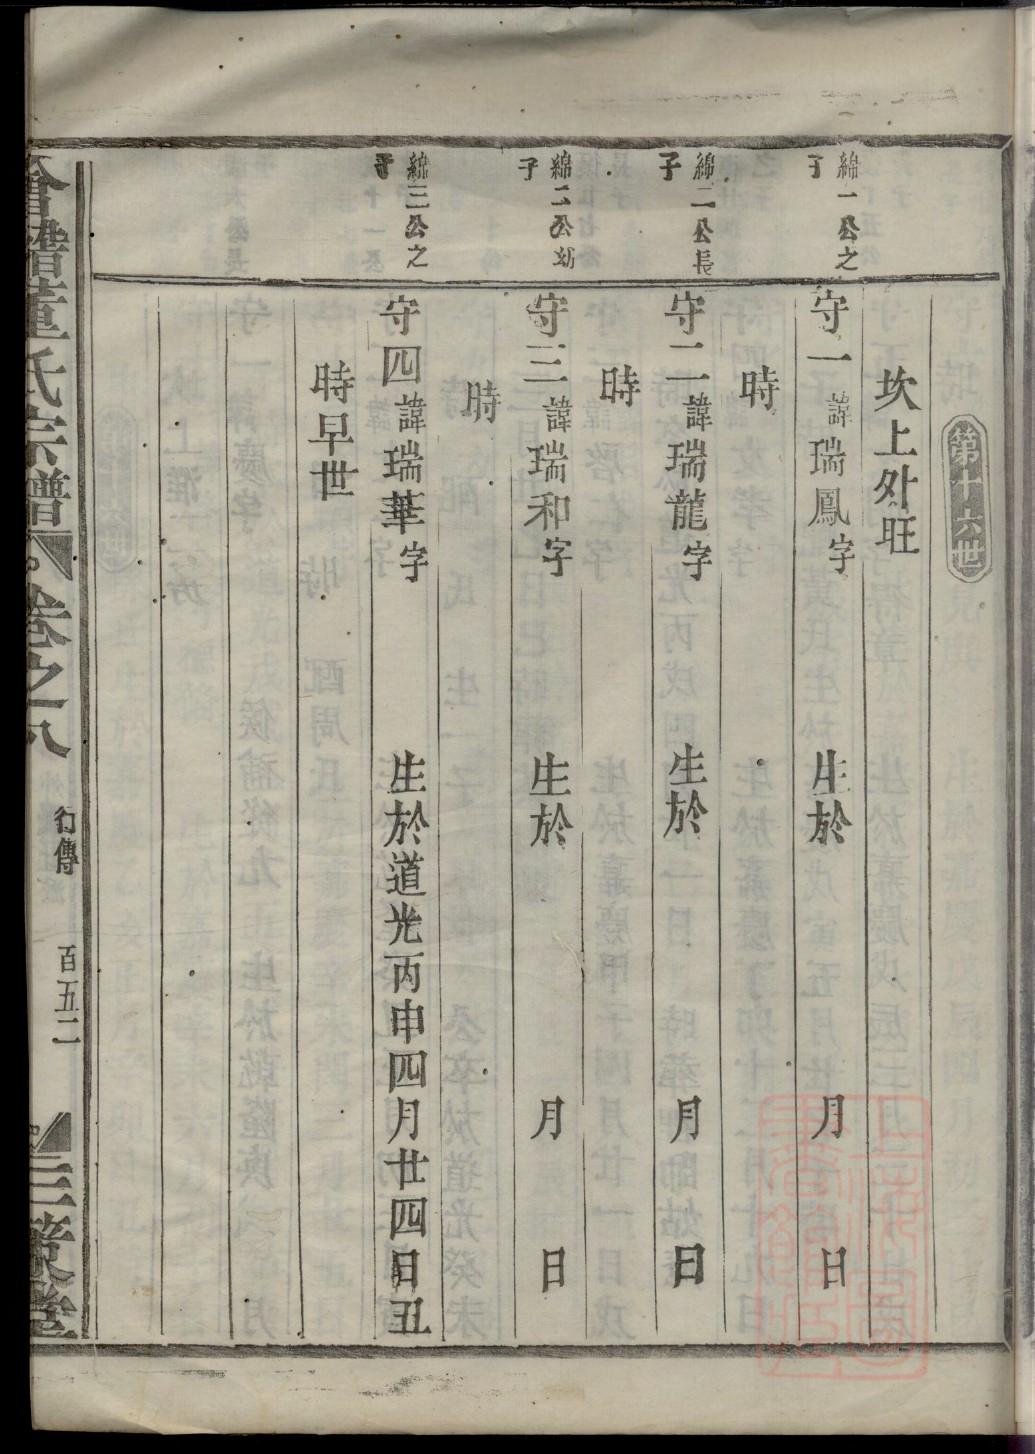 第十六世
坎上外旺
綿一公之子
守一諱瑞鳳字　生於　月　日
時
綿二公長子
守二諱瑞龍字　生於　月　日
時
綿二公幼子
守三諱瑞和字　生於　月　日
時
綿三公之子
守四諱瑞華字　生於道光丙申四月廿四日丑
時早世
會稽董氏宗譜　卷之八　行傳　百五二　三策堂